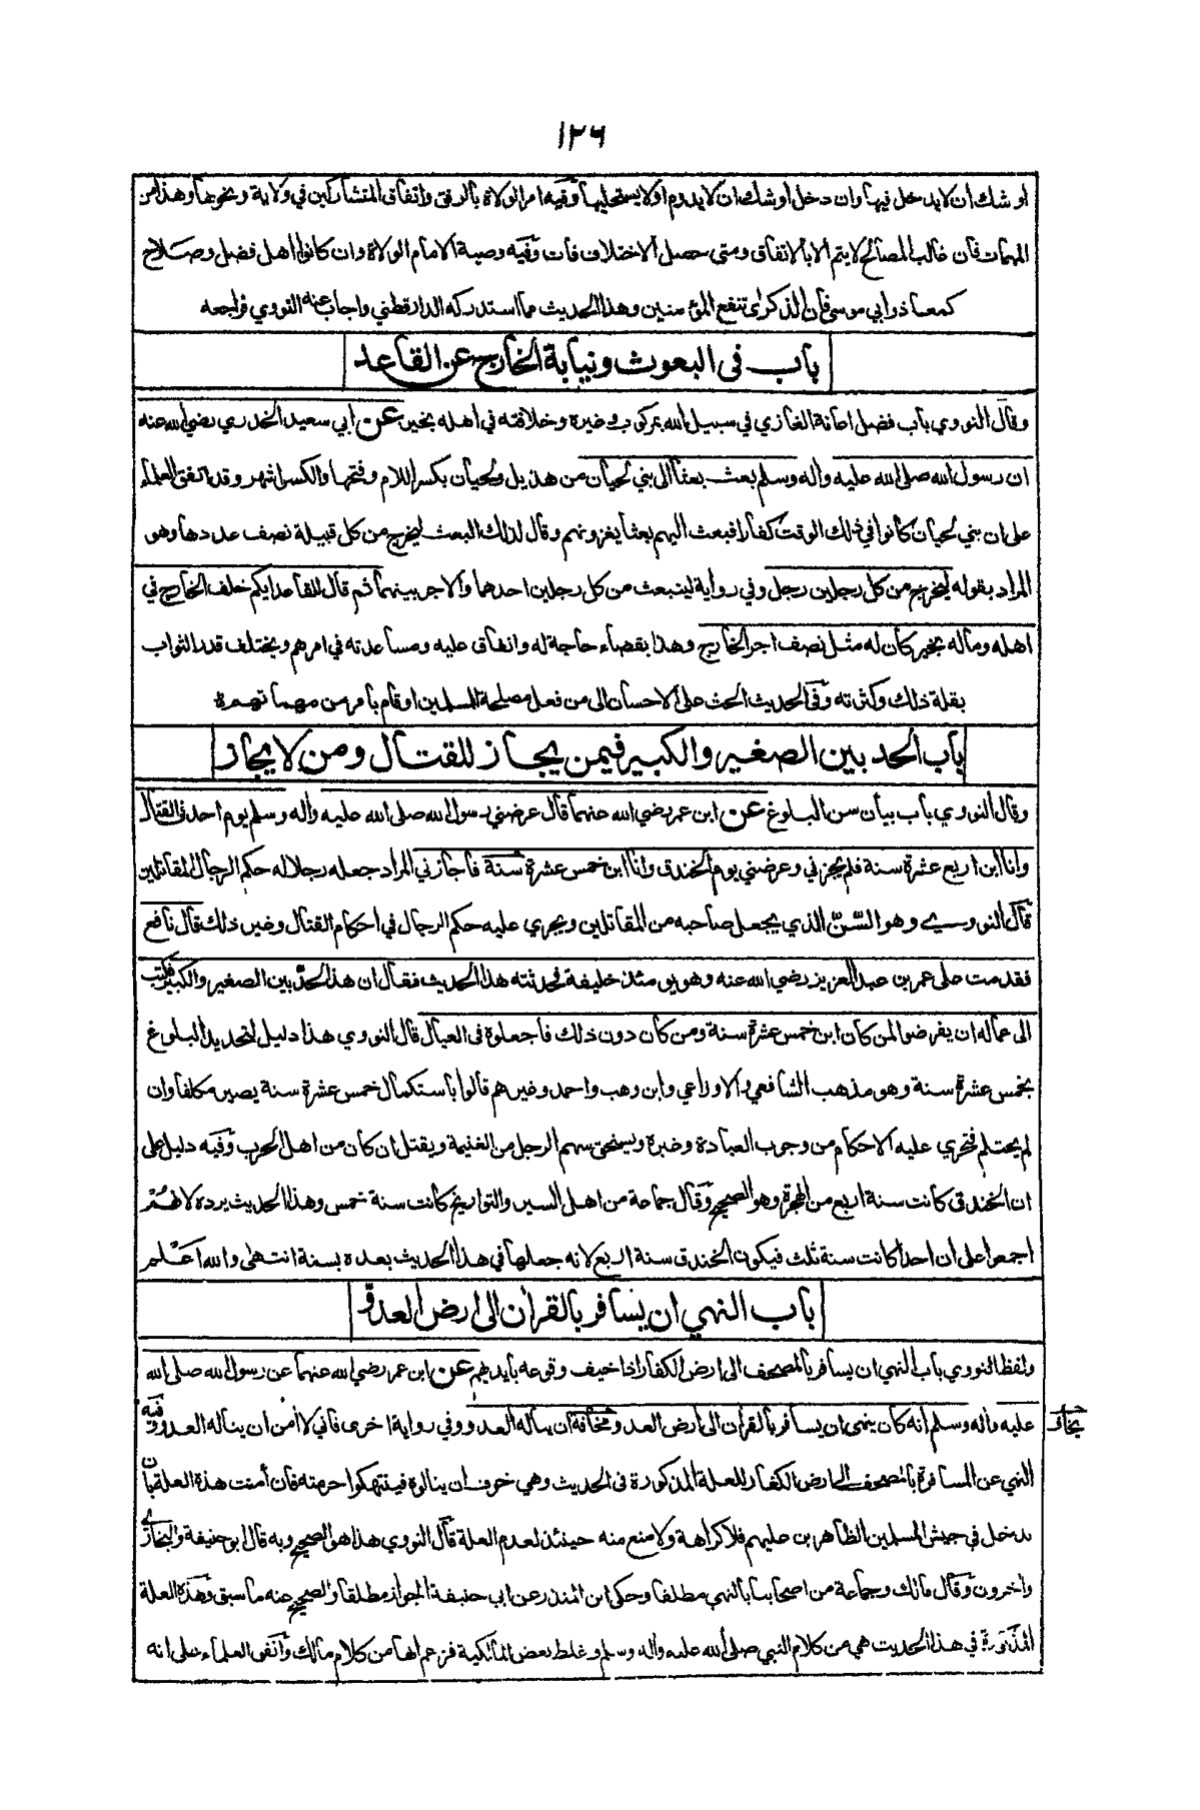 ١٢٦
او شك ان لا يدخل فيها وان دخل اوشك ان لا يدوم او لا يستحليها وفيه امر الولاة بالرفق واتفاق المتشاركين في ولاية ونحوها وهذا من
المهمات فان غالب المصالح لا يتم الا بالاتفاق ومتى حصل الاختلاف فات وفيه وصية الامام الولاة وان كانوا اهل فضل وصلاح
كمعاذ وابي موسى فان الذكرى تنفع المؤمنين وهذا الحديث مما استدركه الدارقطني واجاب عنه النووي فراجعه
باب في البعوث ونيابة الخارج عن القاعد
وقال النووي باب فضل اعانة الغازي في سبيل الله بمركوب وغيره وخلافته في اهله بخير عن ابي سعيد الخدري رضي الله عنه
ان رسول الله صلى الله عليه واله وسلم بعث بعثا الى بني لحيان من هذيل ولحيان بكسر اللام وفتحها والكسر اشهر وقد اتفق العلماء
على ان بني لحيان كانوا في ذلك الوقت كفارا فبعث اليهم بعثا يغزونهم وقال لذلك البعث ليخرج من كل قبيلة نصف عددها وهو
المراد بقوله ليخرج من كل رجلين رجل وفي رواية لينبعث من كل رجلين احدهما والاجر بينهما ثم قال للقاعد ايكم خلف الخارج في
اهله وماله بخير كان له مثل نصف اجر الخارج وهذا بقضاء حاجة له وانفاق عليه ومساعدته في امرهم ويختلف قدر الثواب
بقلة ذلك وكثرته وفي الحديث الحث على الاحسان الى من فعل مصلحة المسلمين او قام بامر من مهماتهم
باب الحد بين الصغير والكبير فيمن يجاز للقتال ومن لا يجاز
وقال النووي باب بيان سن البلوغ عن ابن عمر رضي الله عنهما قال عرضني رسول الله صلى الله عليه واله وسلم يوم احد في القتال
وانا ابن اربع عشرة سنة فلم يجزني وعرضني يوم الخندق وانا ابن خمس عشرة سنة فاجازني المراد جعله رجلا له حكم الرجال المقاتلين
قال النووي وهو السّنّ الذي يجعل صاحبه من المقاتلين ويجري عليه حكم الرجال في احكام القتال وغير ذلك قال نافع
فقدمت على عمر بن عبد العزيز رضي الله عنه وهو يومئذ خليفة فحدثته هذا الحديث فقال ان هذا الحدّ بين الصغير والكبير فكتب
الى عماله ان يفرضوا لمن كان ابن خمس عشرة سنة ومن كان دون ذلك فاجعلوه في العيال قال النووي هذا دليل لتحديد البلوغ
بخمس عشرة سنة وهو مذهب الشافعي والاوزاعي وابن وهب واحمد وغيرهم قالوا باستكمال خمس عشرة سنة يصير مكلفا وان
لم يحتلم فتجري عليه الاحكام من وجوب العبادة وغيره ويستحق سهم الرجل من الغنيمة ويقتل ان كان من اهل الحرب وفيه دليل على
ان الخندق كانت سنة اربع من الهجرة وهو الصحيح وقال جماعة من اهل السير والتواريخ كانت سنة خمس وهذا الحديث يرده لانهم
اجمعوا على ان احدا كانت سنة ثلث فيكون الخندق سنة اربع لانه جعلها في هذا الحديث بعده بسنة انتهى والله اعلم
باب النهي ان يسافر بالقرآن الى ارض العدوّ
ولفظ النووي باب النهي ان يسافر بالمصحف الى ارض الكفار اذا خيف وقوعه بايديهم عن ابن عمر رضي الله عنهما عن رسول الله صلى الله
عليه واله وسلم انه كان ينهى ان يسافر بالقرآن الى ارض العدو مخافة ان يناله العدو وفي رواية اخرى فاني لا آمن ان يناله العدو وفيه
النهي عن المسافرة بالمصحف الى ارض الكفار للعلة المذكورة في الحديث وهي خوف ان ينالوه فينتهكوا حرمته فان أمنت هذه العلة بان
يدخل في جيش المسلمين الظاهرين عليهم فلا كراهة ولا منع منه حينئذ لعدم العلة قال النووي هذا هو الصحيح وبه قال ابو حنيفة والبخاري
وآخرون وقال مالك وجماعة من اصحابنا بالنهي مطلقا وحكى ابن المنذر عن ابي حنيفة الجواز مطلقا والصحيح عنه ما سبق وهذه العلة
المذكورة في هذا الحديث هي من كلام النبي صلى الله عليه واله وسلم وغلط بعض المالكية فزعم انها من كلام مالك واتفق العلماء على انه